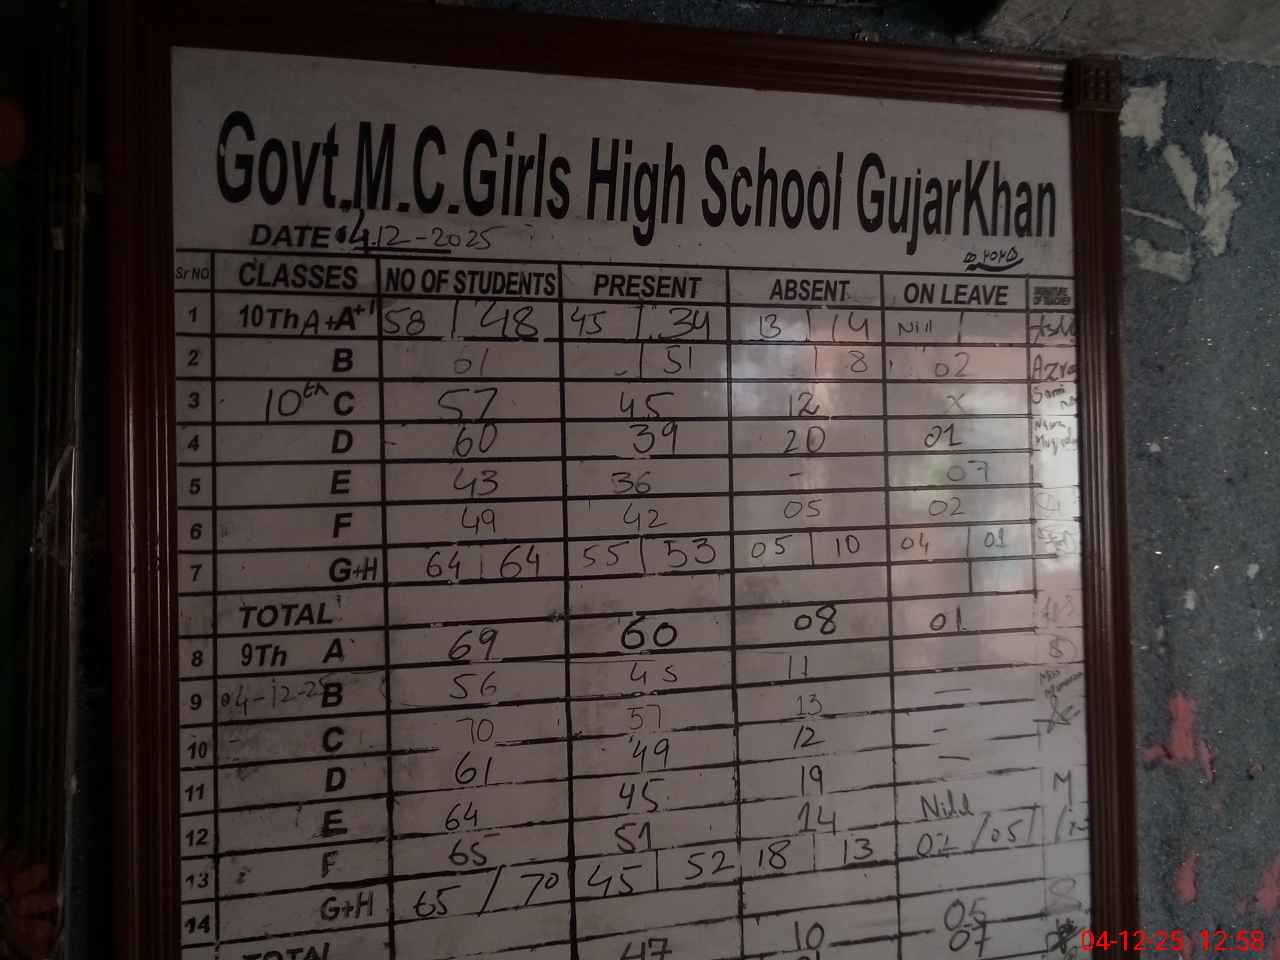 Govt.M.C.Girls High School GujarKhan
DATE 04.12-2025
Sr NO CLASSES NO OF STUDENTS PRESENT ABSENT ON LEAVE SIGNATURE OF TEACHER
1 10Th A+A+1 58 | 48 45 | 34 13 | 14 Nill |
2 B 61 - | 51 | 8 02 Azra
3 10th C 57 45 12 x
4 D 60 39 20 01
5 E 43 36 - 07
6 F 49 42 05 02
7 G+H 64 | 64 55 | 53 05 | 10 04 | 01
TOTAL
8 9Th A 69 60 08 01
9 04-12-25 B 56 45 11
10 C 70 57 13 —
11 D 61 49 12 -
12 E 64 45 19 —
13 F 65 51 14 Nill
14 G+H 65 / 70 45 | 52 18 | 13 02 / 05 |
TOTAL 05
47 10 07
04-12-25 12:58